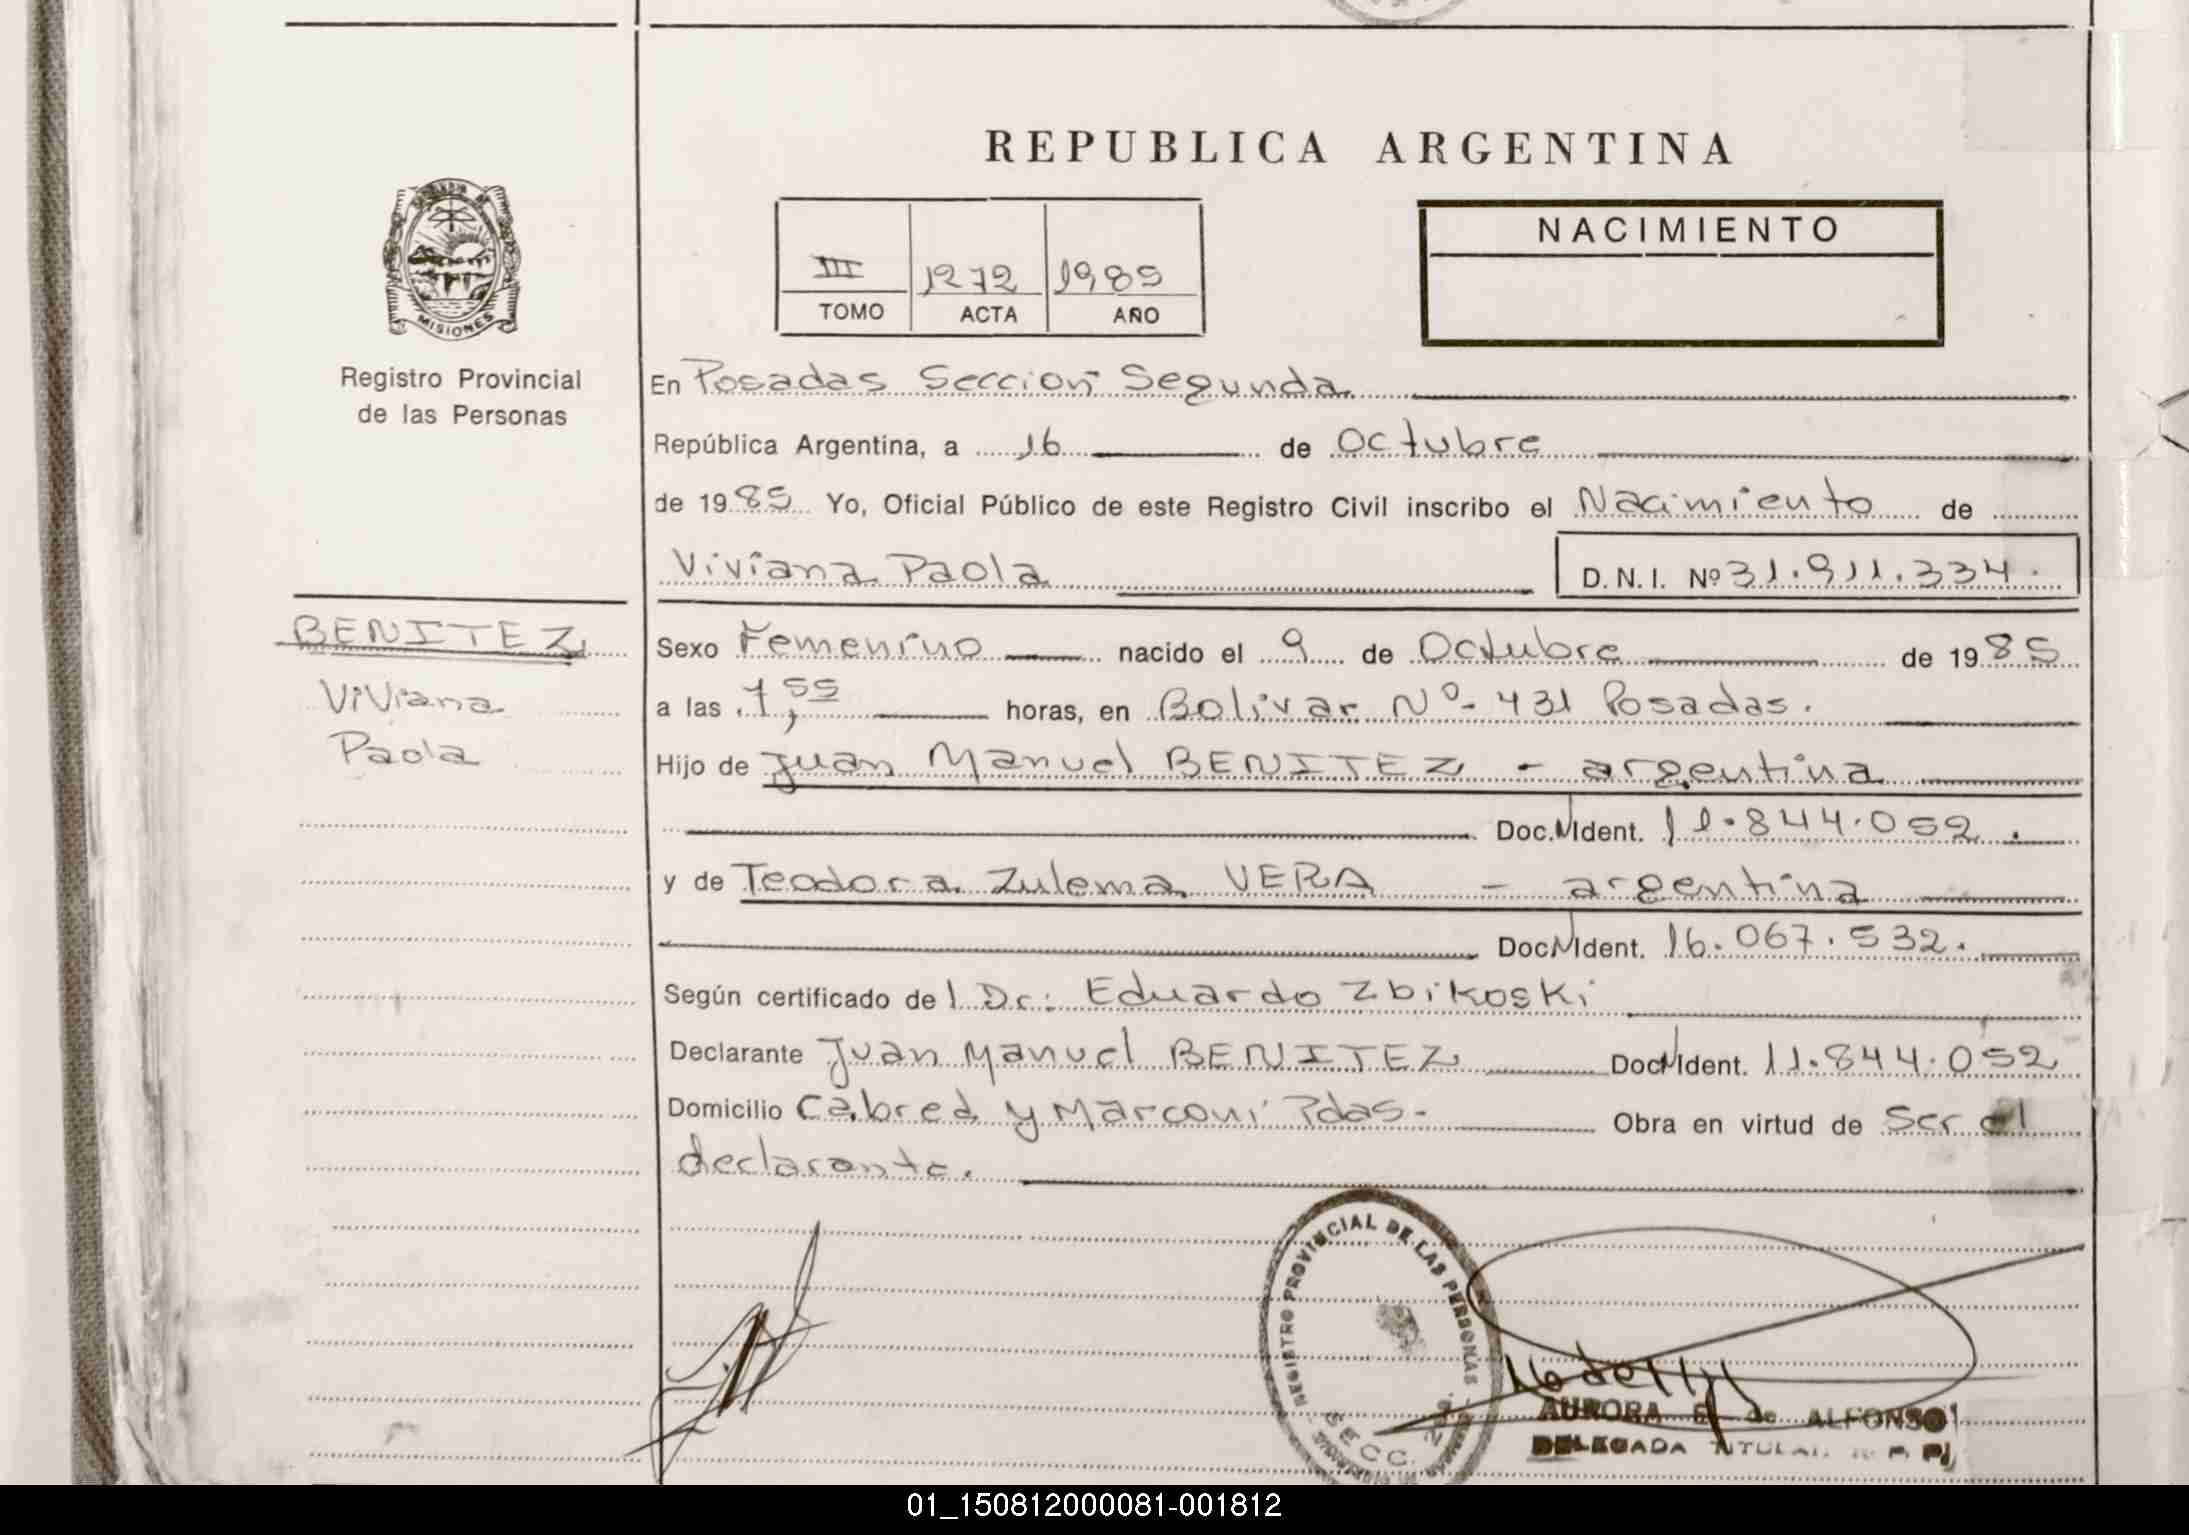 REPUBLICA ARGENTINA
III 1272 1985
TOMO ACTA AÑO
NACIMIENTO
MISIONES
Registro Provincial
de las Personas
En Posadas Seccion Segunda
República Argentina, a 16 de Octubre
de 1985 Yo, Oficial Público de este Registro Civil inscribo el Nacimiento de
Viviana Paola D.N.I. Nº 31.911.334.
BENITEZ
Viviana
Paola
Sexo Femenino nacido el 9 de Octubre de 1985
a las 1,55 horas, en Bolivar Nº- 431 Posadas.
Hijo de Juan Manuel BENITEZ - argentina
Doc. N Ident. 11.844.052.
y de Teodora Zulema VERA - argentina
Doc. N Ident. 16.067.532.
Según certificado del Dr: Eduardo Zbikoski
Declarante Juan Manuel BENITEZ Doc N Ident. 11.844.052
Domicilio Cabred y Marconi Pdas- Obra en virtud de Ser el
declarante.
REGISTRO PROVINCIAL DE LAS PERSONAS
SECC. 2da.
AURORA E. de ALFONSO
DELEGADA TITULAR
01_150812000081-001812